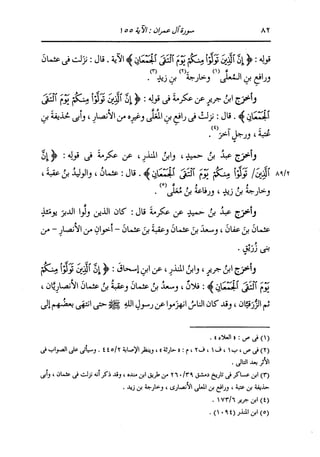 ٨٢ سورة آل عمران : الآية ١٥٥
قوله : ﴿ إِنَّ الَّذِينَ تَوَلَّوْا مِنكُمْ يَوْمَ الْتَقَى الْجَمْعَانِ ﴾ الآية . قال : نزلت فى عثمانَ
ورافعِ بنِ المُعلَّى(١) وخارجةَ(٢) بنِ زيدٍ(٣) .
وأخرَج ابنُ جريرٍ عن عكرمةَ فى قولِه : ﴿ إِنَّ الَّذِينَ تَوَلَّوْا مِنكُمْ يَوْمَ الْتَقَى
الْجَمْعَانِ ﴾ . قال : نزلت فى رافعِ بنِ المُعلَّى وغيرِه من الأنصارِ ، وأبى حُذيفةَ بنِ
عُتبةَ ، ورجلٍ آخرَ(٤) .
وأخرَج عبدُ بنُ حميدٍ ، وابنُ المنذرِ ، عن عكرمةَ فى قولِه : ﴿ إِنَّ
٨٩/٢ الَّذِينَ/ تَوَلَّوْا مِنكُمْ يَوْمَ الْتَقَى الْجَمْعَانِ ﴾ . قال : عثمانُ ، والوليدُ بنُ عقبةَ ،
وخارجةُ بنُ زيدٍ ، ورفاعةُ بنُ مُعلَّى(٥) .
وأخرَج عبدُ بنُ حميدٍ عن عكرمةَ قال : كان الذين ولَّوا الدبرَ يومئذٍ
عثمانَ بنَ عفانَ ، وسعدَ بنَ عثمانَ وعقبةَ بنَ عثمانَ - أخوان من الأنصارِ - من
بنى زُرَيقٍ .
وأخرَج ابنُ جريرٍ ، وابنُ المنذرِ ، عن ابنِ إسحاقَ : ﴿ إِنَّ الَّذِينَ تَوَلَّوْا مِنكُمْ
يَوْمَ الْتَقَى الْجَمْعَانِ ﴾ : فلانٌ ، وسعدُ بنُ عثمانَ وعقبةُ بنُ عثمانَ الأنصاريَّان ،
ثم الزُّرَقيَّان ، وقد كان الناسُ انهزَموا عن رسولِ اللهِ ﷺ حتى انتهى بعضُهم إلى
(١) فى ص : « العلاء » .
(٢) فى ص ، ب ١ ، ف ١ ، ف ٢ ، م : « حارثة » ، وينظر الإصابة ٤٤٥/٢ . وسيأتى على الصواب فى
الأثر بعد التالى .
(٣) ابن عساكر فى تاريخ دمشق ٢٦٠/٣٩ من طريق ابن منده ، وقد ذكر أنه نزلت فى عثمان ، وأبى
حذيفة بن عتبة ، ورافع بن المعلى الأنصارى ، وخارجة بن زيد .
(٤) ابن جرير ١٧٣/٦ .
(٥) ابن المنذر (١٠٩٤) .